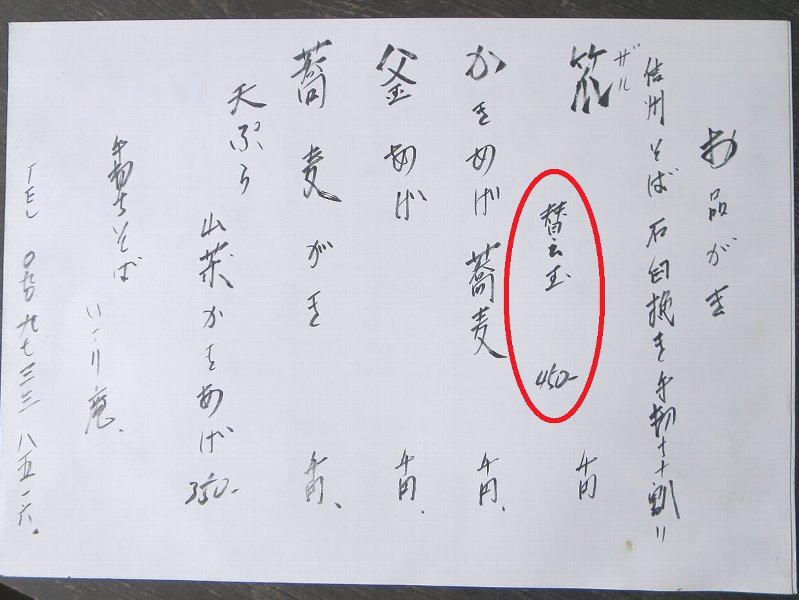 お品がき
信州そば 石臼挽き手打十割〃
ザル
笊 千円
替え玉 450-
かきあげ蕎麦 千円、
釜あげ 千円、
蕎麦がき 千円、
天ぷら
山菜かきあげ 350-
手打ちそば いっり庵、
TEL 〇九〇 九七三三 八五一六。